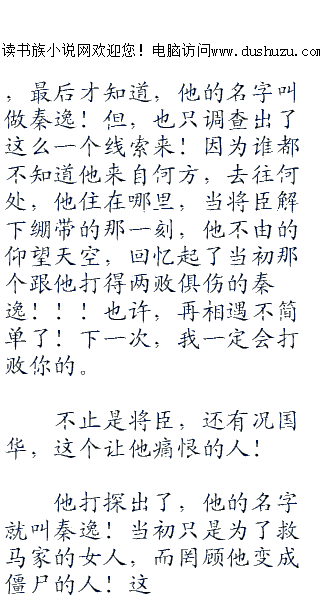 读书族小说网欢迎您！电脑访问www.dushuzu.com
，最后才知道，他的名字叫
做秦逸！但，也只调查出了
这么一个线索来！因为谁都
不知道他来自何方，去往何
处，他住在哪里，当将臣解
下绷带的那一刻，他不由的
仰望天空，回忆起了当初那
个跟他打得两败俱伤的秦
逸！！！也许，再相遇不简
单了！下一次，我一定会打
败你的。
不止是将臣，还有况国
华，这个让他痛恨的人！
他打探出了，他的名字
就叫秦逸！当初只是为了救
马家的女人，而罔顾他变成
僵尸的人！这